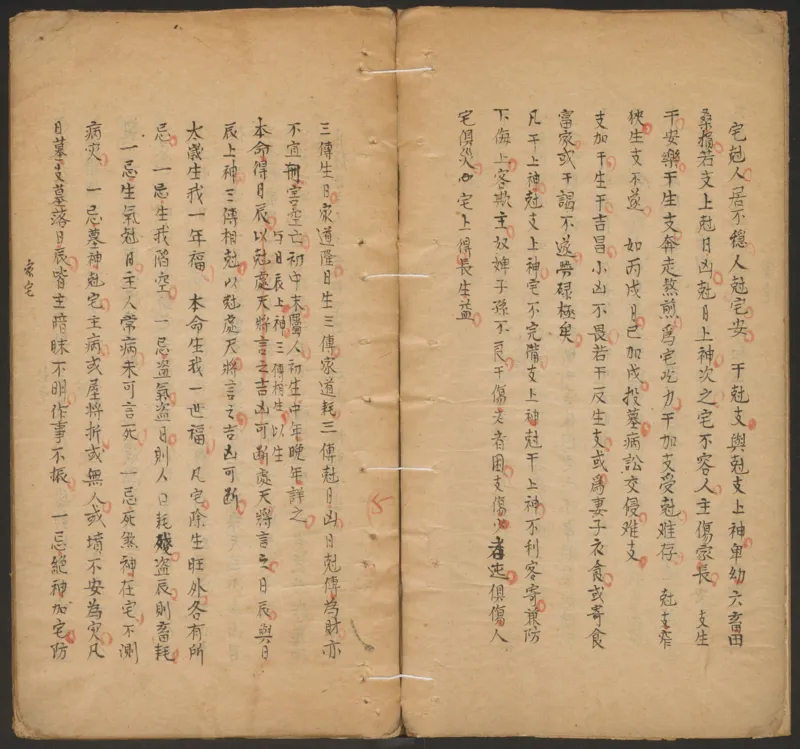 宅尅人居不穩人尅宅安　干尅支與尅支上神卑幼六畜田
桑損若支上尅日凶尅日上神次之宅不容人主傷家長　支生
干安樂干生支奔走熬煎為宅吃力干加支受尅难存　尅支窄
狹生支不遂　如丙戌日巳加戌投墓病訟交侵难支
支加干生干吉昌小凶不畏若干反生支或為妻子衣食或寄食
富家或干謁不遂勞碌極矣
凡干上神尅支上神宅不完備支上神尅干上神不利客寄兼防
下侮上客欺主奴婢子孫不良干傷老者困支傷少者迍俱傷人
宅俱災如宅上得長生益
三傳生日家道隆日生三傳家道耗三傳尅日凶日尅傳為財亦
不宜刑害空亡初中末屬人初生中年晚年詳之
与日辰上神三傳相生以生
本命得日辰以尅處天將言之吉凶可斷處天將言之日辰與日
辰上神三傳相尅以尅處天將言之吉凶可断
太歲生我一年福　本命生我一世福　凡宅除生旺外各有所
忌　一忌生我陷空　一忌盜氣盜日則人口耗殘盜辰則畜耗
一忌生氣尅日主人常病未可言死　一忌死煞神在宅不測
病灾　一忌墓神尅宅主病或屋將折或無人或墳不安為灾凡
日墓支墓落日辰皆主暗昧不明作事不振　一忌絕神加宅防
家宅